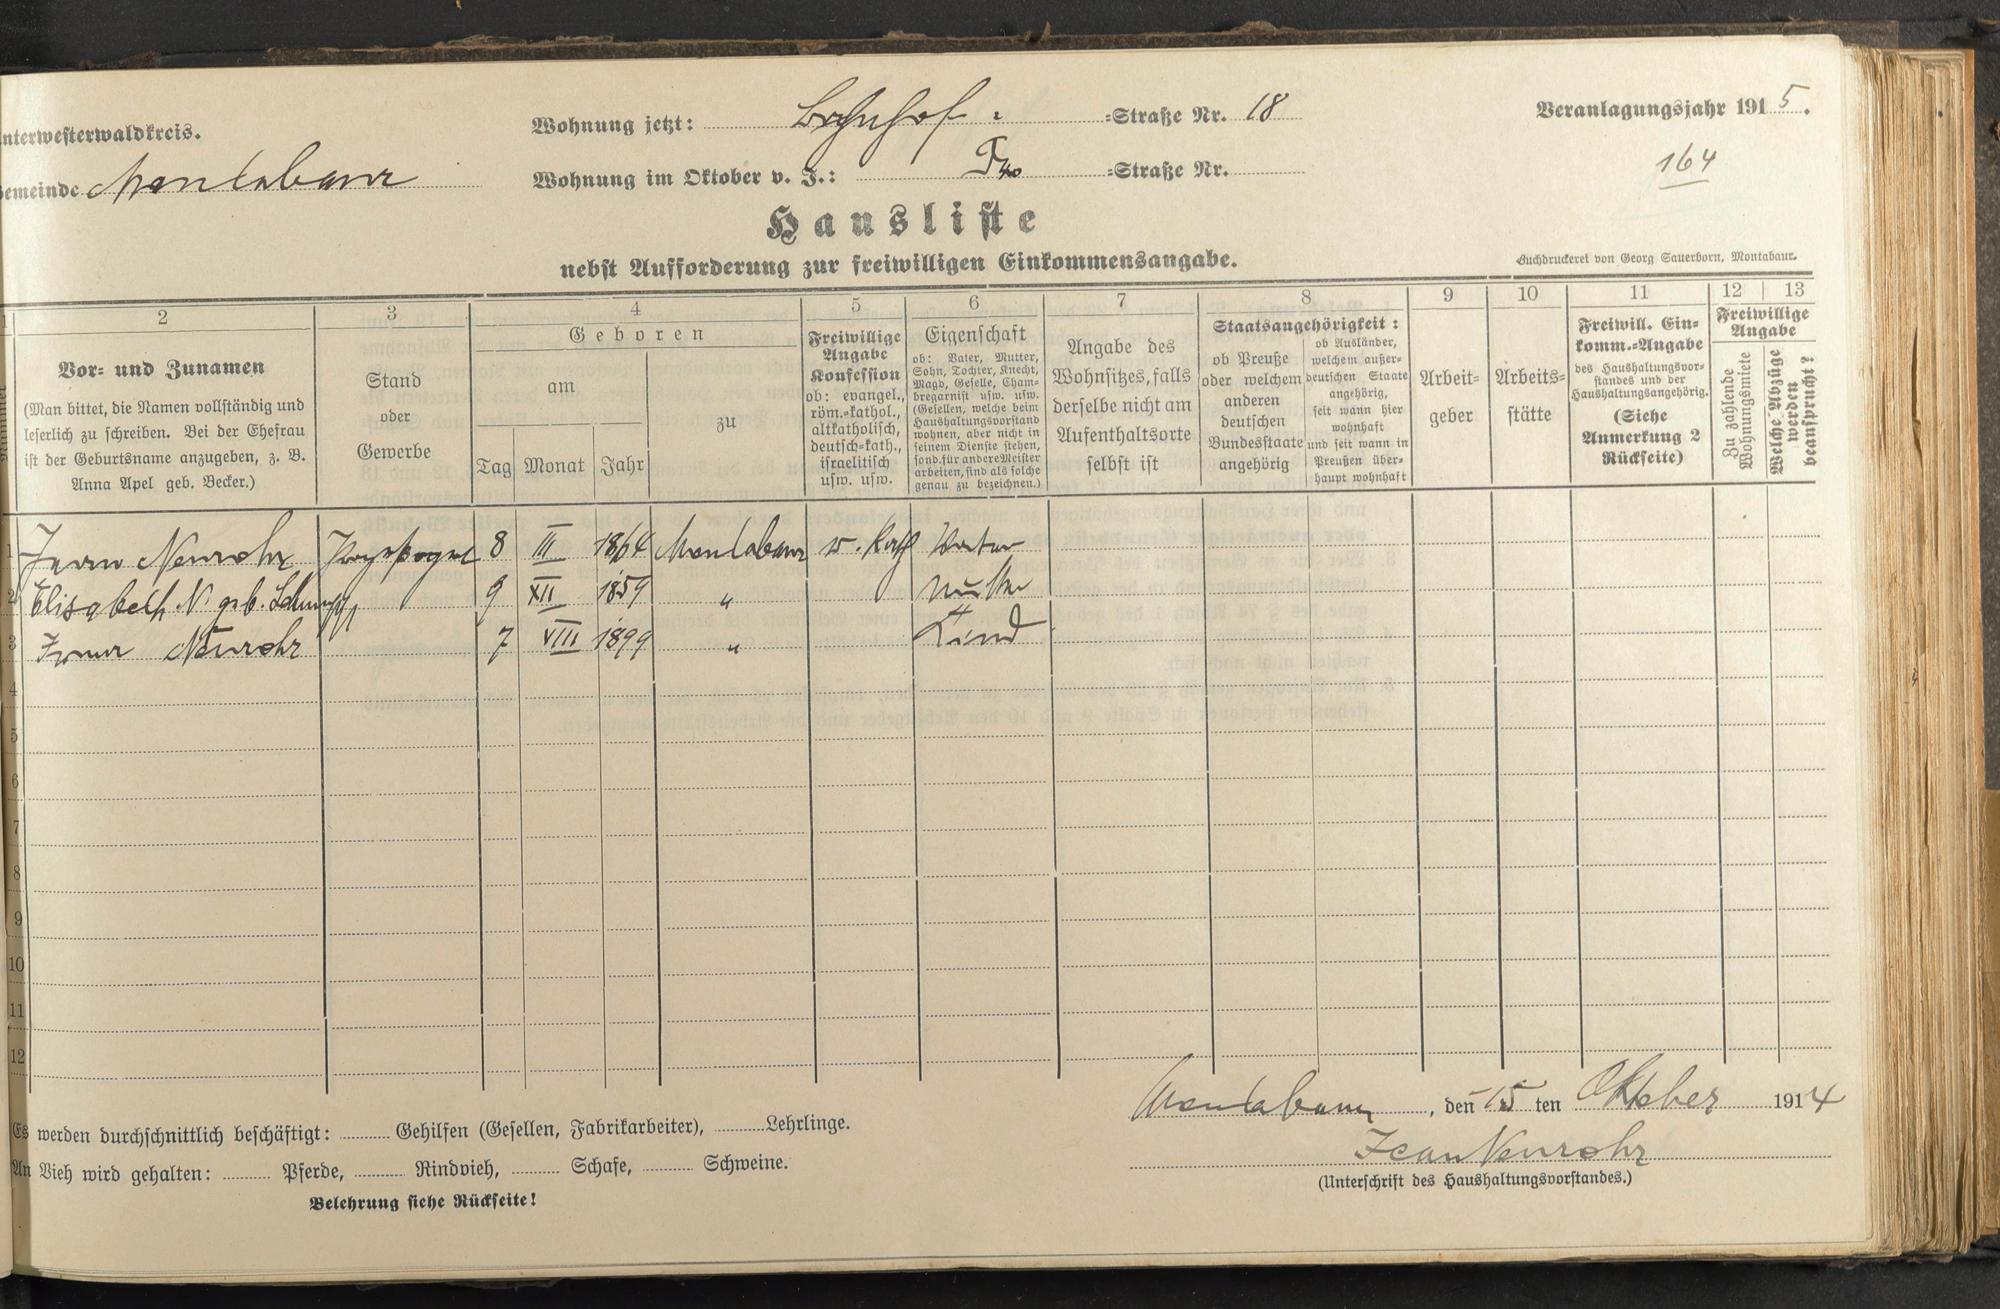 nterwesterwaldkreis.
Wohnung jetzt: Bahnhof -Straße Nr. 18
Veranlagungsjahr 1915.
emeinde Montabaur
Wohnung im Oktober v. J.: -Straße Nr.
164
Hausliste
nebst Aufforderung zur freiwilligen Einkommensangabe.
Buchdruckerei von Georg Sauerborn, Montabaur.
1 2 3 4 5 6 7 8 9 10 11 12 13
Nummer
Vor- und Zunamen
(Man bittet, die Namen vollständig und
leserlich zu schreiben. Bei der Ehefrau
ist der Geburtsname anzugeben, z. B.
Anna Apel geb. Becker.)
Stand
oder
Gewerbe
Geboren
am
Tag Monat Jahr
zu
Freiwillige
Angabe
Konfession
ob: evangel.,
röm.-kathol.,
altkatholisch,
deutsch-kath.,
israelitisch
usw. usw.
Eigenschaft
ob: Vater, Mutter,
Sohn, Tochter, Knecht,
Magd, Geselle, Cham-
bregarnist usw. usw.
(Gesellen, welche beim
Haushaltungsvorstand
wohnen, aber nicht in
seinem Dienste stehen,
sond. für andere Meister
arbeiten, sind als solche
genau zu bezeichnen.)
Angabe des
Wohnsitzes, falls
derselbe nicht am
Aufenthaltsorte
selbst ist
Staatsangehörigkeit:
ob Preuße
oder welchem
anderen
deutschen
Bundesstaate
angehörig
ob Ausländer,
welchem außer-
deutschen Staate
angehörig,
seit wann hier
wohnhaft
und seit wann in
Preußen über-
haupt wohnhaft
Arbeit-
geber
Arbeits-
stätte
Freiwill. Ein-
komm.-Angabe
des Haushaltungsvor-
standes und der
Haushaltungsangehörig.
(Siehe
Anmerkung 2
Rückseite)
Freiwillige
Angabe
Zu zahlende
Wohnungsmiete
Welche Abzüge
werden
beansprucht?
1 Jean Neurohr 8 III 1864 Montabaur Kath Vater
2 Elisabeth N geb. 9 XII 1859 " Mutter
3 Neurohr 7 VIII 1899 " Kind
4
5
6
7
8
9
10
11
12
Montabaur, den 15 ten Oktober 1914
Es werden durchschnittlich beschäftigt: Gehilfen (Gesellen, Fabrikarbeiter), Lehrlinge.
Jean Neurohr
An Vieh wird gehalten: Pferde, Rindvieh, Schafe, Schweine.
(Unterschrift des Haushaltungsvorstandes.)
Belehrung siehe Rückseite!